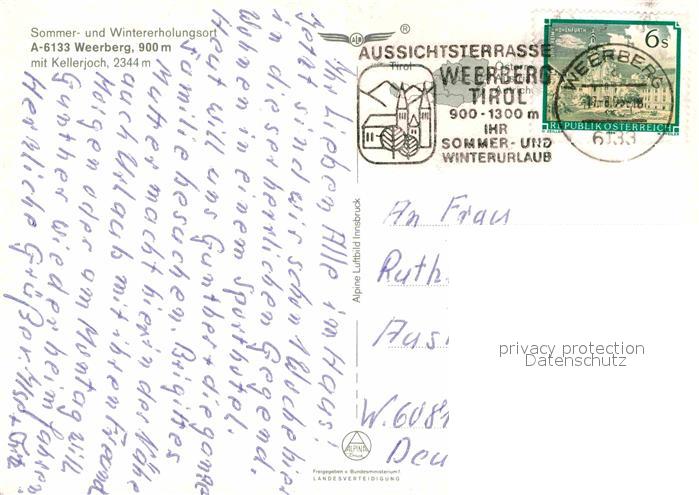 Sommer- und Wintererholungsort
A-6133 Weerberg, 900 m
mit Kellerjoch, 2344 m
Ihr Lieben Alle im Haus!
Jetzt sind wir schon 1 Woche hier
in dieser herrlichen Gegend.
Wohnen in einem Sporthotel.
Heut will uns Günther + die ganze
Familie besuchen. Brigittes
Mutter macht hier in der Nähe
auch Urlaub mit ihren Freund
Morgen oder am Montag will
Günther wieder heim fahren.
Herrliche Grüße
®
AUSSICHTSTERRASSE
WEERBERG
TIROL
900-1300 m
IHR
SOMMER- UND
WINTERURLAUB
Tirol
WEERBERG
6133
6 s
REPUBLIK ÖSTERREICH
An Frau
Ruth.
Aus
W. 608
Deu
privacy protection
Datenschutz
Alpine Luftbild Innsbruck
ALPINE
Freigegeben v. Bundesministerium f.
LANDESVERTEIDIGUNG